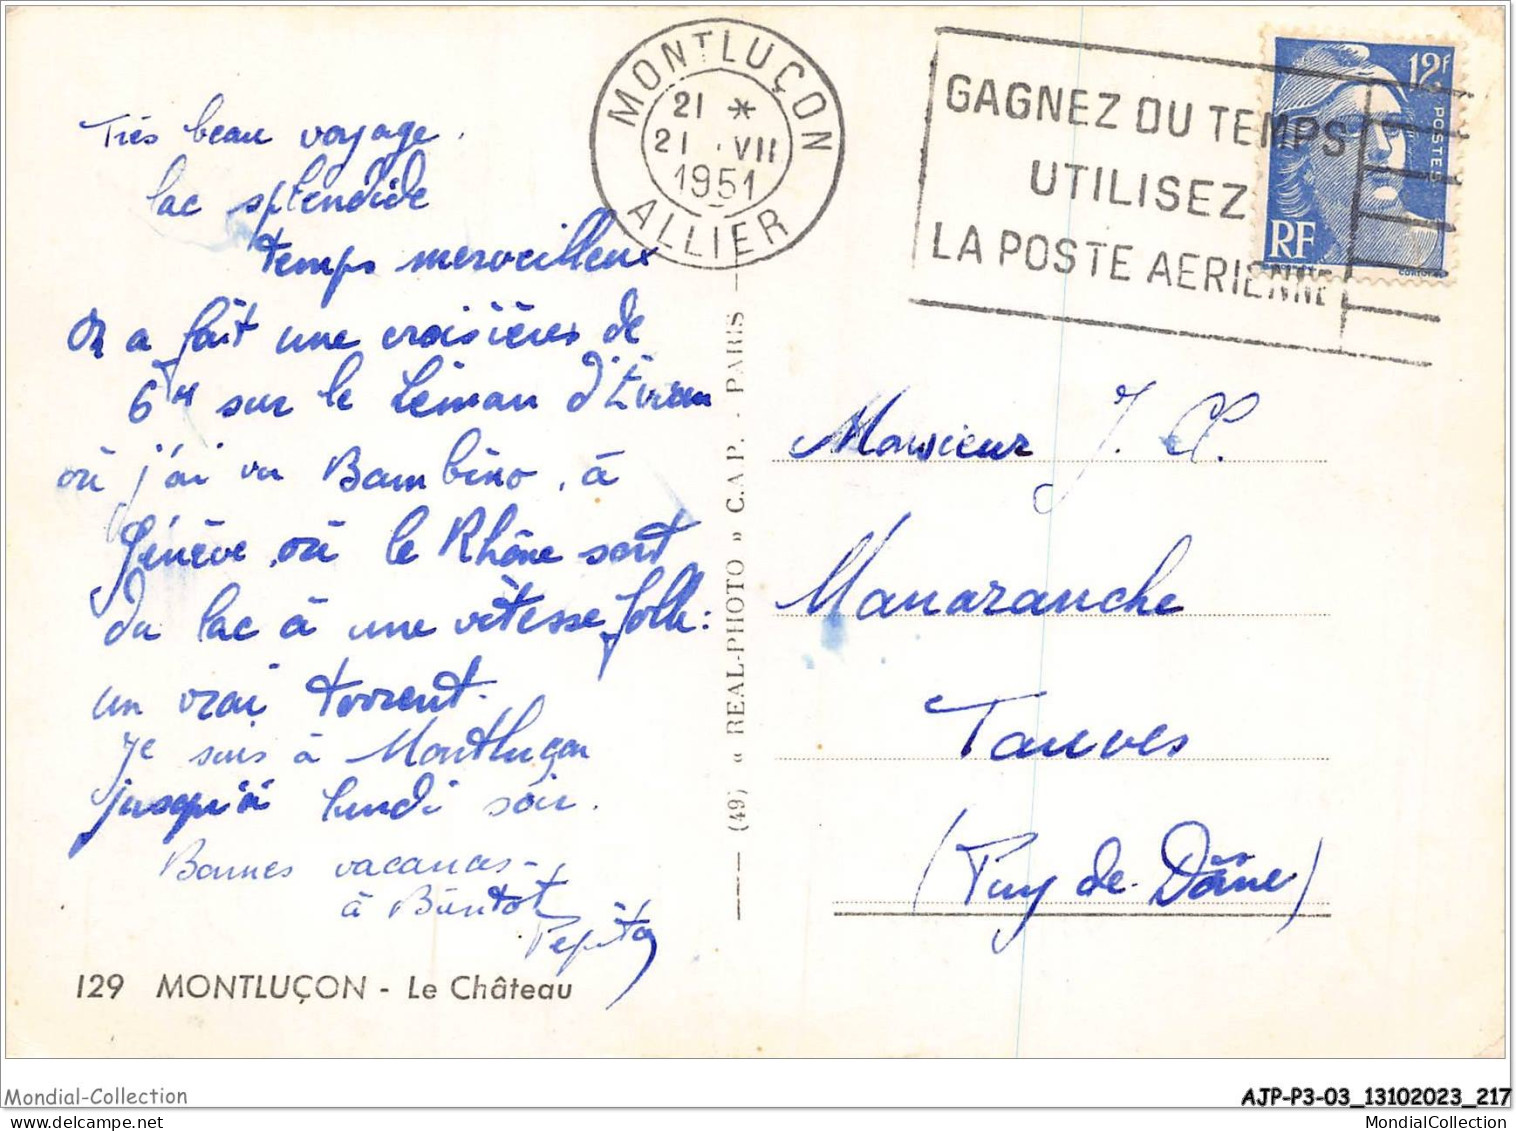 Très beau voyage.
lac splendide
temps merveilleux
On a fait une croisières de
6H sur le Léman d'Évian
où j'ai vu Bambino, à
Génève, où le Rhône sort
du lac à une vitesse folle :
un vrai torrent.
Je suis à Montluçon
jusqu'à lundi soir.
Bonnes vacances -
à Bientôt
Pépita
129 MONTLUÇON - Le Château
(49) « REAL-PHOTO » C.A.P. - PARIS
MONTLUÇON
21 *
21 . VII
1951
ALLIER
GAGNEZ DU TEMPS
UTILISEZ
LA POSTE AERIENNE
12F
POSTES
RF
Monsieur J. Cl.
Manaranche
Tauves
(Puy-de-Dôme)
Mondial-Collection
AJP-P3-03_13102023_217
MondialCollection.com